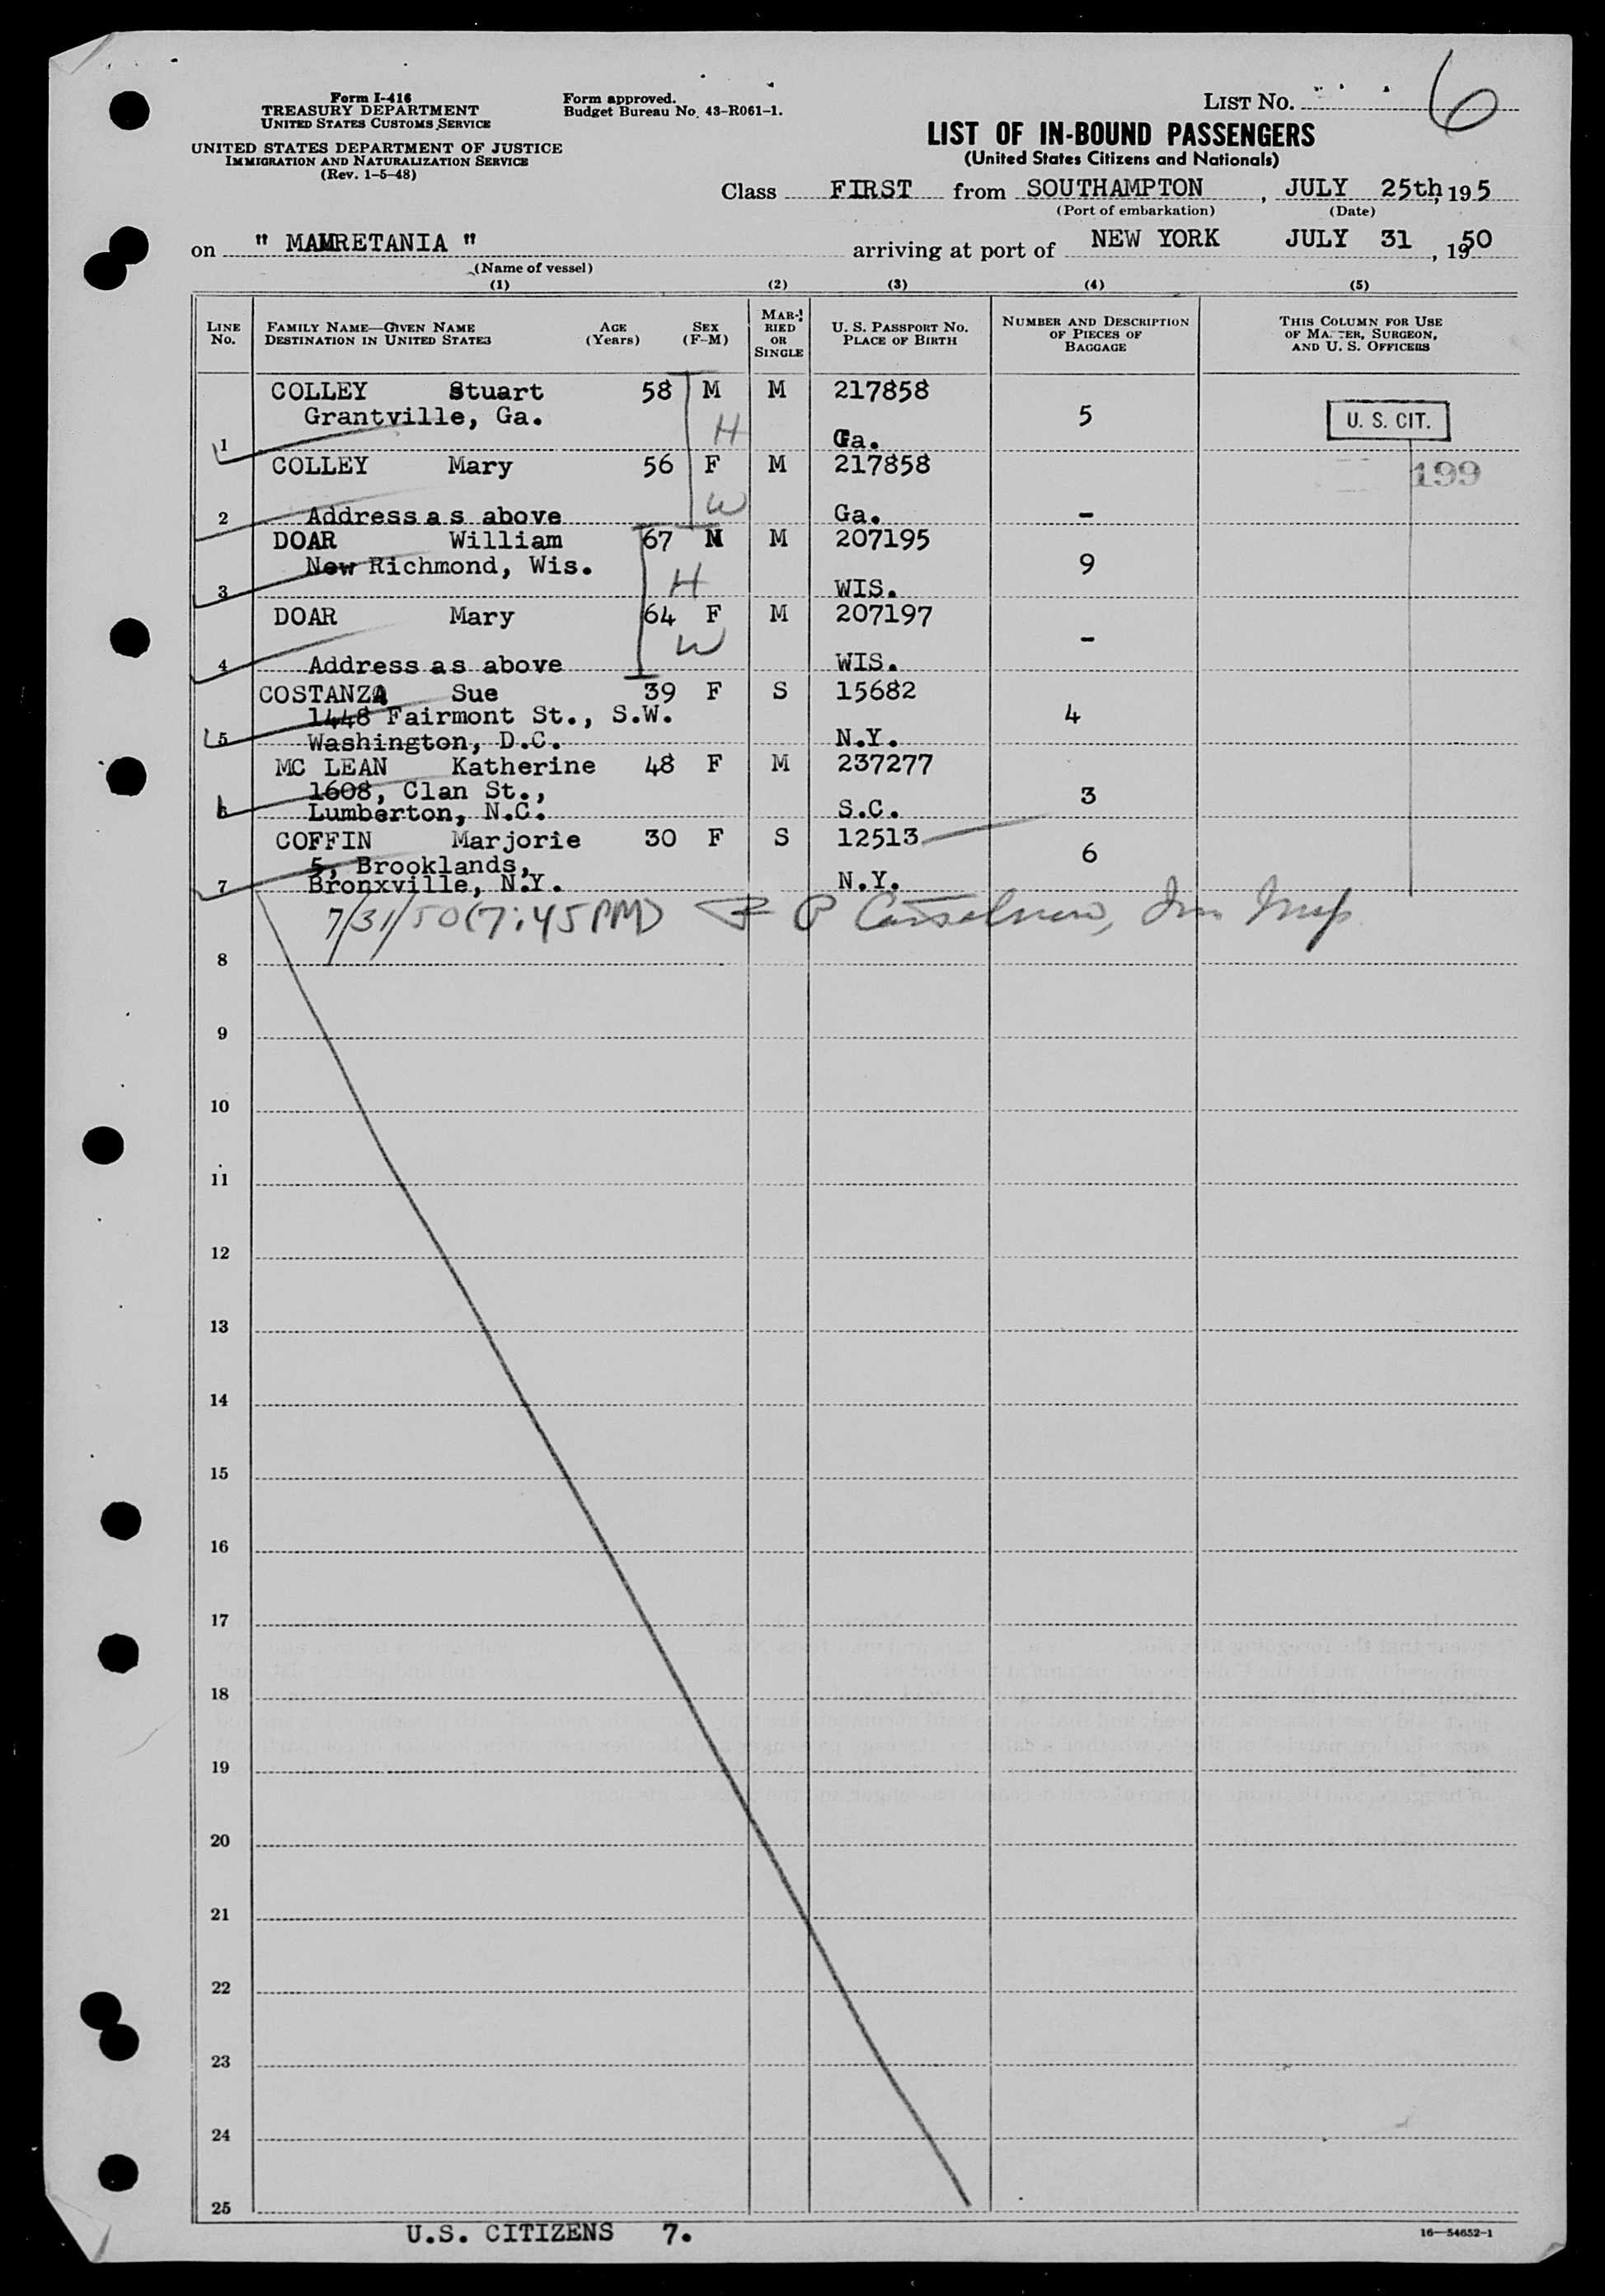 Form I-416
TREASURY DEPARTMENT
UNITED STATES CUSTOMS SERVICE
UNITED STATES DEPARTMENT OF JUSTICE
IMMIGRATION AND NATURALIZATION SERVICE
(Rev. 1-5-48)
Form approved.
Budget Bureau No. 43-R061-1.
LIST NO. 6
LIST OF IN-BOUND PASSENGERS
(United States Citizens and Nationals)
Class FIRST from SOUTHAMPTON, JULY 25th, 195
(Port of embarkation) (Date)
on " MAURETANIA " arriving at port of NEW YORK JULY 31, 1950
(Name of vessel)
(1) (2) (3) (4) (5)
LINE NO. FAMILY NAME—GIVEN NAME DESTINATION IN UNITED STATES AGE (Years) SEX (F-M) MARRIED OR SINGLE U. S. PASSPORT NO. PLACE OF BIRTH NUMBER AND DESCRIPTION OF PIECES OF BAGGAGE THIS COLUMN FOR USE OF MASTER, SURGEON, AND U. S. OFFICERS
COLLEY Stuart 58 M M 217858
Grantville, Ga. 5 U. S. CIT.
1 H Ga.
COLLEY Mary 56 F M 217858 199
W
2 Address a s above Ga. -
DOAR William 67 M M 207195
New Richmond, Wis. 9
3 H WIS.
DOAR Mary 64 F M 207197
W -
4 Address a s above WIS.
COSTANZA Sue 39 F S 15682
1448 Fairmont St., S.W. 4
5 Washington, D.C. N.Y.
MC LEAN Katherine 48 F M 237277
1608, Clan St., 3
6 Lumberton, N.C. S.C.
COFFIN Marjorie 30 F S 12513
5, Brooklands, 6
7 Bronxville, N.Y. N.Y.
7/31/50 (7:45 PM) Imm Insp
8
9
10
11
12
13
14
15
16
17
18
19
20
21
22
23
24
25
U.S. CITIZENS 7.
16—54652-1